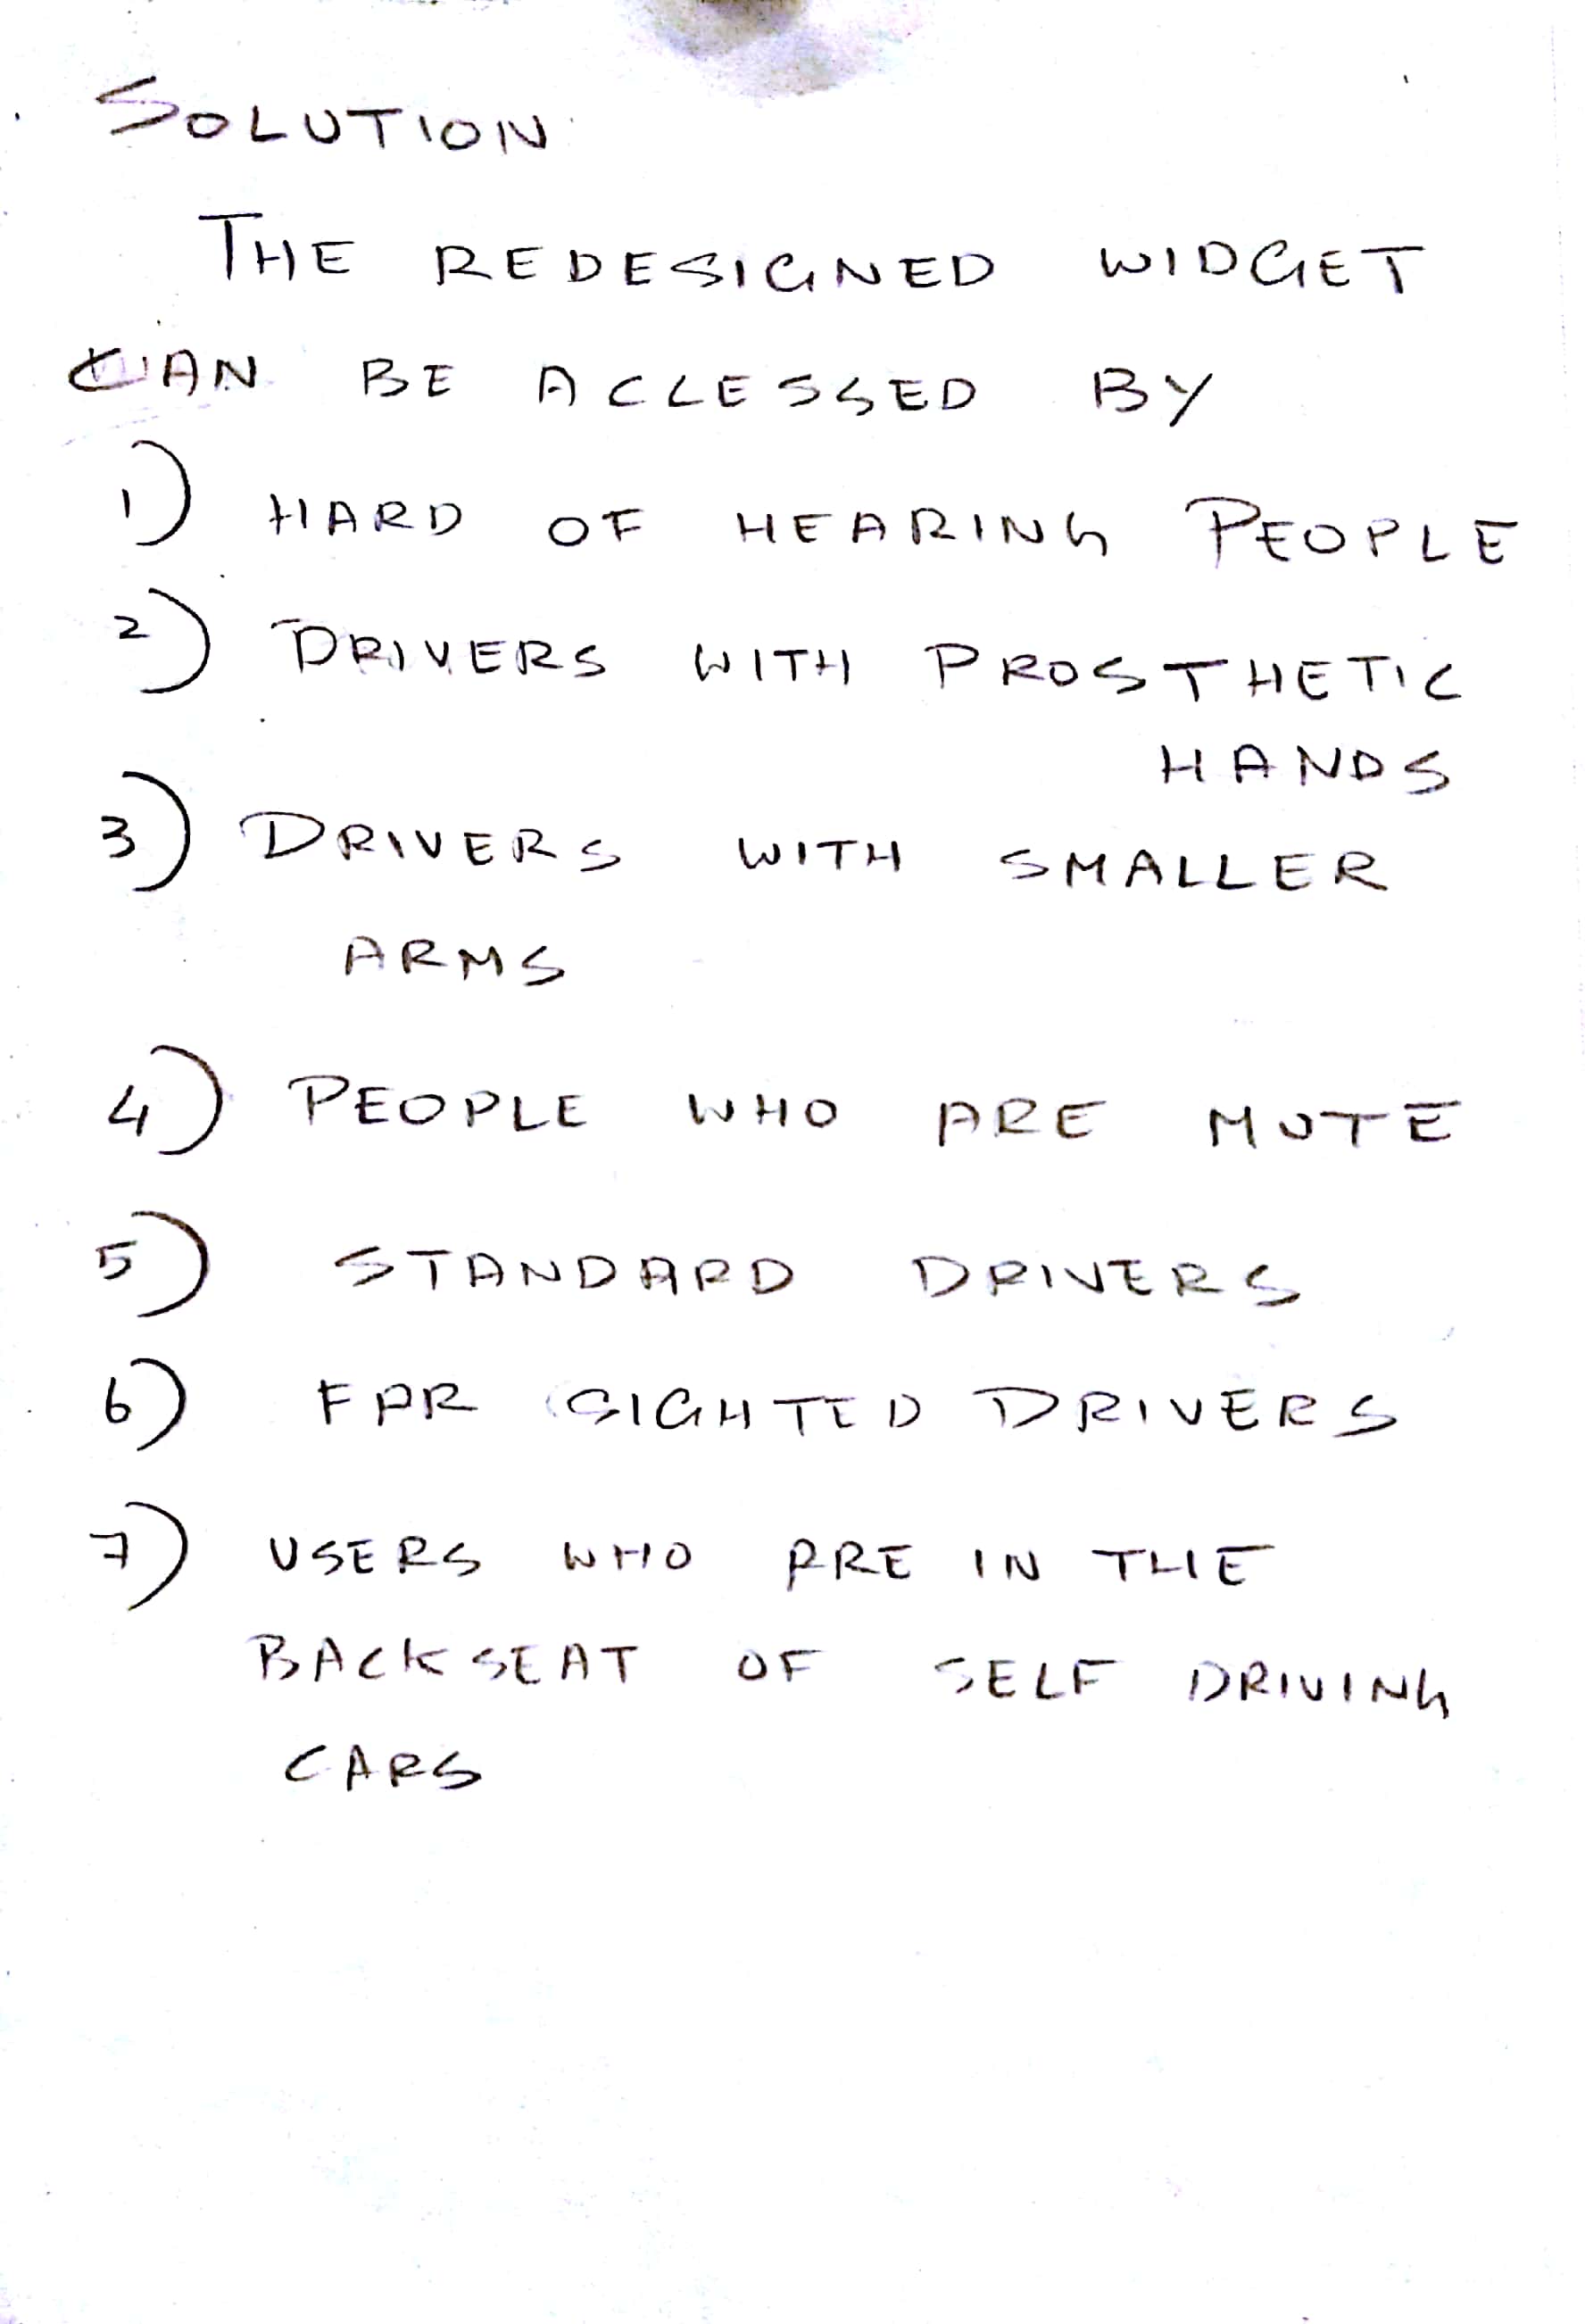 SOLUTION
THE REDESIGNED WIDGET
CAN BE ACCESSED BY
1) HARD OF HEARING PEOPLE
2) DRIVERS WITH PROSTHETIC
HANDS
3) DRIVERS WITH SMALLER
ARMS
4) PEOPLE WHO ARE MUTE
5) STANDARD DRIVERS
6) FAR SIGHTED DRIVERS
7) USERS WHO ARE IN THE
BACKSEAT OF SELF DRIVING
CARS